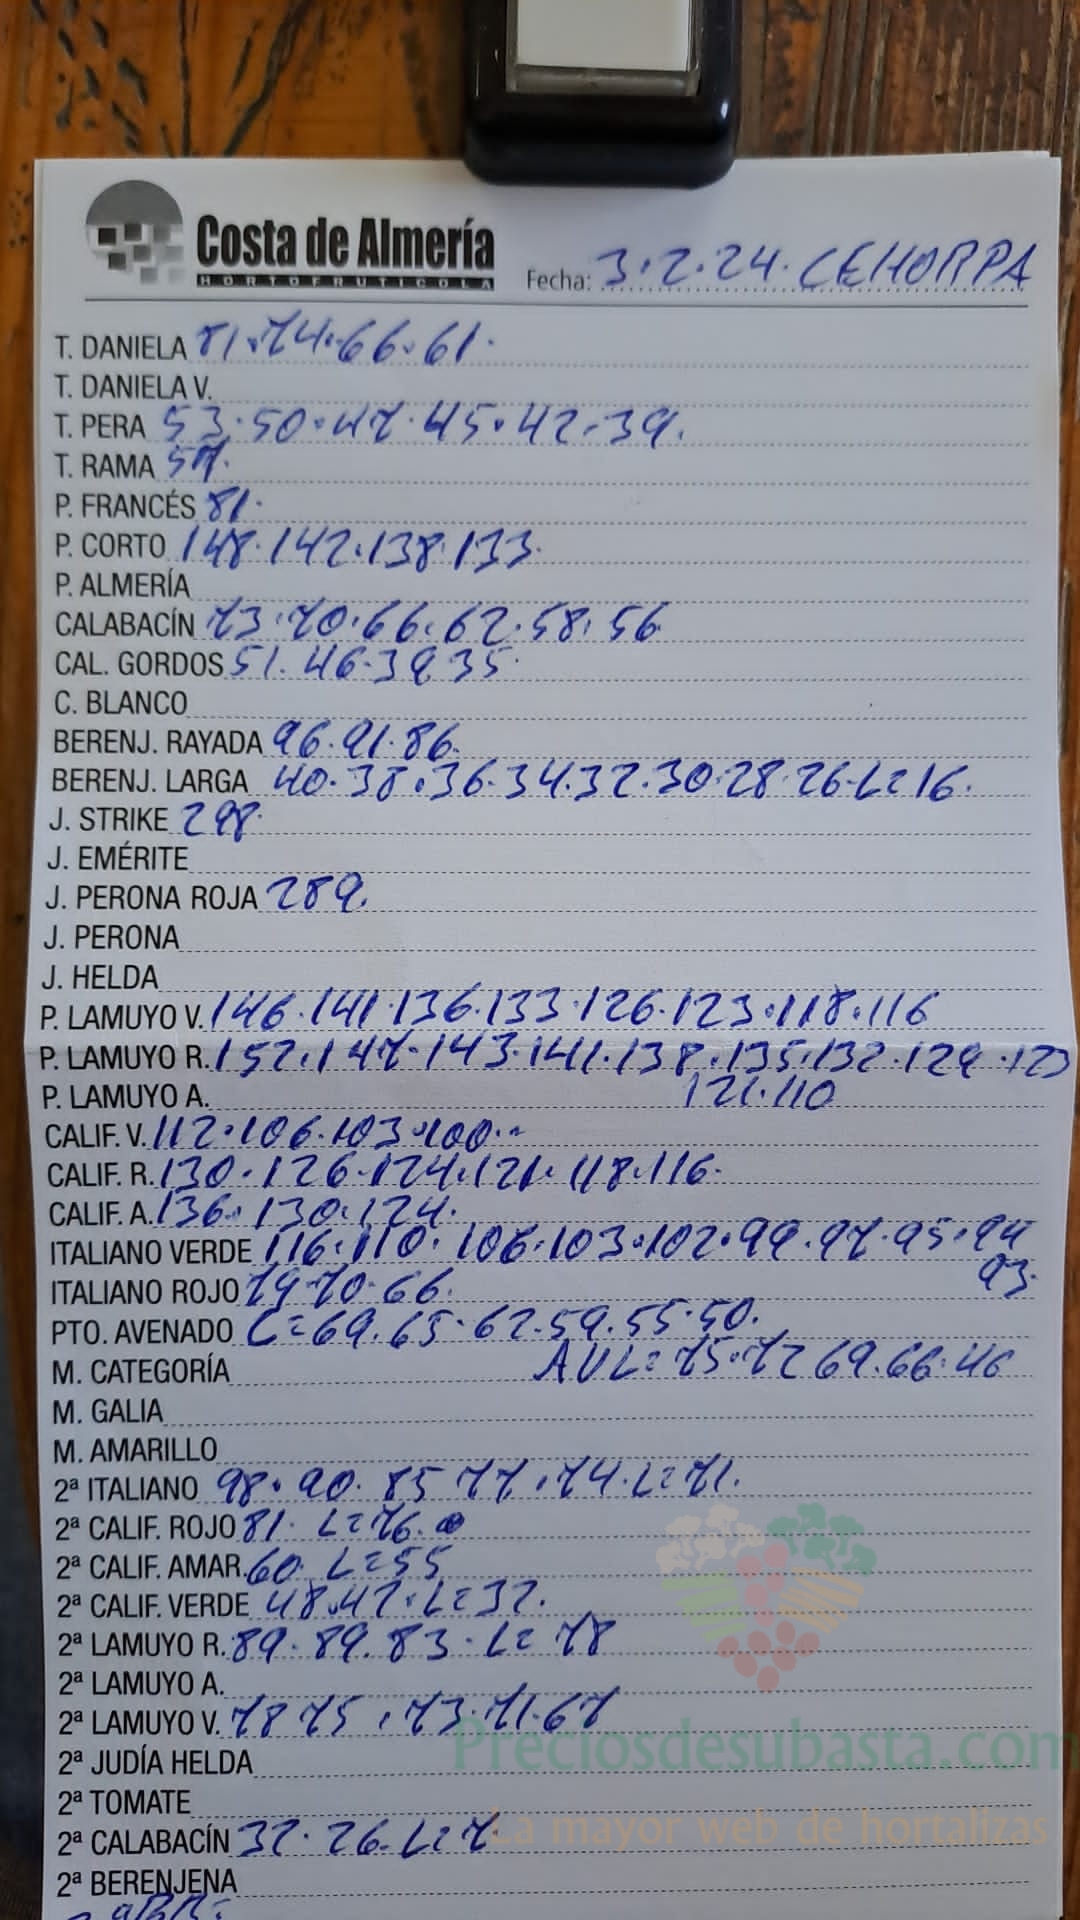 Costa de Almería
HORTOFRUTICOLA
Fecha: 3.2.24. CEHORPA
T. DANIELA 81.74.66.61.
T. DANIELA V.
T. PERA 53.50.47.45.42.39.
T. RAMA 57.
P. FRANCÉS 81.
P. CORTO 148.142.138.133.
P. ALMERÍA
CALABACÍN 73.70.66.62.58.56
CAL. GORDOS 51.46.39 35
C. BLANCO
BERENJ. RAYADA 96.91.86.
BERENJ. LARGA 40.38.36.34.32.30.28.26.L=16.
J. STRIKE 298.
J. EMÉRITE
J. PERONA ROJA 289.
J. PERONA
J. HELDA
P. LAMUYO V. 146.141.136.133.126.123.118.116
P. LAMUYO R. 152.147.143.141.138.135.132.129.123
P. LAMUYO A. 121.110
CALIF. V. 112.106.103.100..
CALIF. R. 130.126.124.121.118.116.
CALIF. A. 136.130.124.
ITALIANO VERDE 116.110.106.103.102.99.97.95.94
93.
ITALIANO ROJO 79.70.66.
PTO. AVENADO L=69.65.62.59.55.50.
M. CATEGORÍA AVL=75.72 69.66.46
M. GALIA
M. AMARILLO
2ª ITALIANO 98.90.85 77.74.L=71.
2ª CALIF. ROJO 81. L=76.
2ª CALIF. AMAR. 60. L=55
2ª CALIF. VERDE 48.42.L=32.
2ª LAMUYO R. 89.89.83.L=78
2ª LAMUYO A.
2ª LAMUYO V. 78 75.73.71.67
2ª JUDÍA HELDA
Preciosdesubasta.com
2ª TOMATE
2ª CALABACÍN 32.26.L=7
La mayor web de hortalizas
2ª BERENJENA